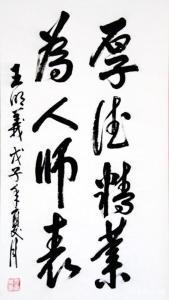 厚德精業
為人師表
王明義戊子年夏月